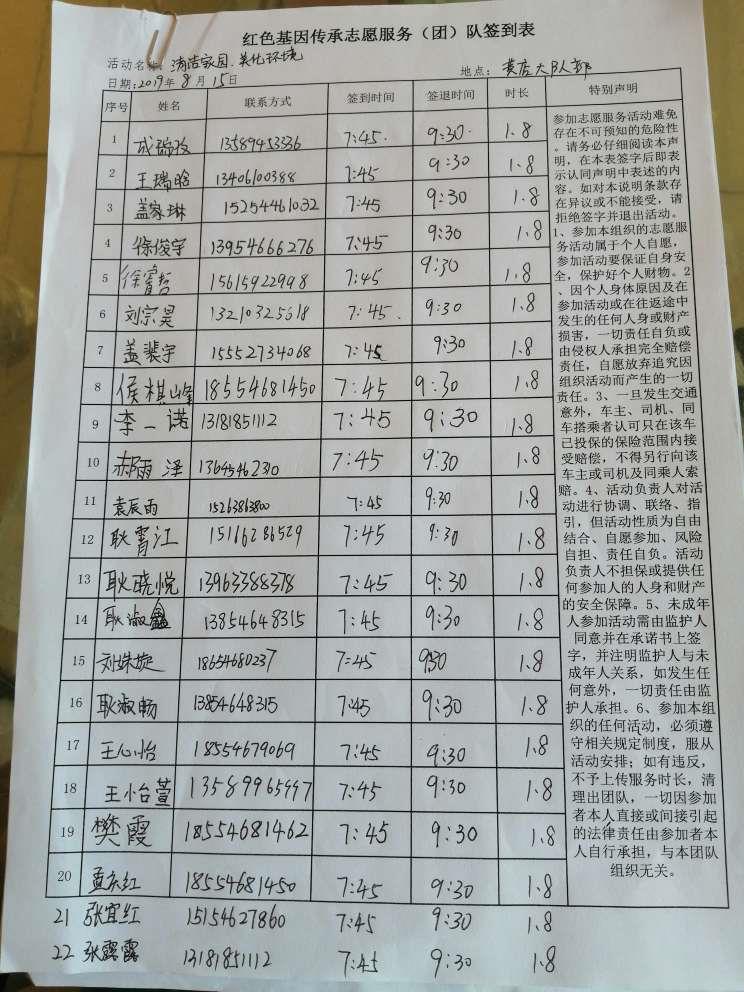 红色基因传承志愿服务（团）队签到表
活动名称：清洁家园.美化环境
日期：2019年8月15日 地点：黄店大队部
序号 姓名 联系方式 签到时间 签退时间 时长 特别声明
1 成瑞 13589453336 7:45. 9:30. 1.8
2 王瑞晗 13406100388 7:45 9:30 1.8
3 盖家琳 15254461032 7:45 9:30 1.8
4 徐俊宇 13954666276 7:45 9:30 1.8
5 徐睿哲 15615922998 7:45 9:30 1.8
6 刘宗昊 13210325618 7:45. 9:30 1.8
7 盖裴宇 15552734068 7:45 9:30 1.8
8 侯棋峰 18554681450 7:45 9:30 1.8
9 李一诺 13181851112 7:45 9:30 1.8
10 郝雨泽 13645462310 7:45 9:30 1.8
11 袁辰雨 15263863800 7:45 9:30 1.8
12 耿霄江 15166286529 7:45 9:30 1.8
13 耿晓悦 13963388378 7:45 9:30 1.8
14 耿淑鑫 13854648315 7:45 9:30 1.8
15 刘姝璇 18654680237 7:45 9:30 1.8
16 耿淑畅 13854648315 7:45 9:30 1.8
17 王心怡 18554679069 7:45 9:30 1.8
18 王怡萱 13589965997 7:45 9:30 1.8
19 樊霞 18554681462 7:45 9:30 1.8
20 孟庆红 18554681450 7:45 9:30 1.8
21 张宜红 15154627860 7:45 9:30 1.8
22 张露露 13181851112 7:45 9:30 1.8
参加志愿服务活动难免
存在不可预知的危险性
。请务必仔细阅读本声
明，在本表签字后即表
示认同声明中表述的内
容。如对本说明条款存
在异议或不能接受，请
拒绝签字并退出活动。
1、参加本组织的志愿服
务活动属于个人自愿，
参加活动要保证自身安
全，保护好个人财物。2
、因个人身体原因及在
参加活动或在往返途中
发生的任何人身或财产
损害，一切责任自负或
由侵权人承担完全赔偿
责任，自愿放弃追究因
组织活动而产生的一切
责任。3、一旦发生交通
意外，车主、司机、同
车搭乘者认可只在该车
已投保的保险范围内接
受赔偿，不得另行向该
车主或司机及同乘人索
赔。4、活动负责人对活
动进行协调、联络、指
引，但活动性质为自由
结合、自愿参加、风险
自担、责任自负。活动
负责人不担保或提供任
何参加人的人身和财产
的安全保障。5、未成年
人参加活动需由监护人
同意并在承诺书上签
字，并注明监护人与未
成年人关系，如发生任
何意外，一切责任由监
护人承担。6、参加本组
织的任何活动，必须遵
守相关规定制度，服从
活动安排；如有违反，
不予上传服务时长，清
理出团队，一切因参加
者本人直接或间接引起
的法律责任由参加者本
人自行承担，与本团队
组织无关。